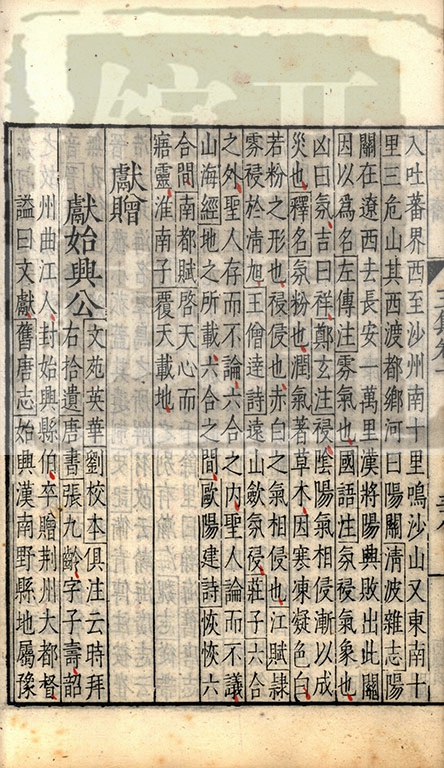 入吐蕃界西至沙州南十里鳴沙山又東南十
里三危山其西渡都鄉河曰陽關清波雜志陽
關在遼西去長安一萬里漢將陽興敗出此關
因以爲名左傳注雰氣也國語注氛祲氣象也
凶曰氛吉曰祥鄭玄注祲陰陽氣相侵漸以成
災也釋名氛粉也潤氣著草木因寒凍凝色白
若粉之形也祲侵也赤白之氣相侵也江賦隸
雰祲於清旭王僧達詩遠山歛氛祲莊子六合
之外聖人存而不論六合之内聖人論而不議
山海經地之所載六合之間歐陽建詩恢恢六
合間南都賦啓天心而
寤靈淮南子覆天載地
獻贈
獻始興公
文苑英華劉校本俱注云時拜
右拾遺唐書張九齡字子壽韶
州曲江人封始興縣伯卒贈荆州大都督
謚曰文獻舊唐志始興漢南野縣地屬豫